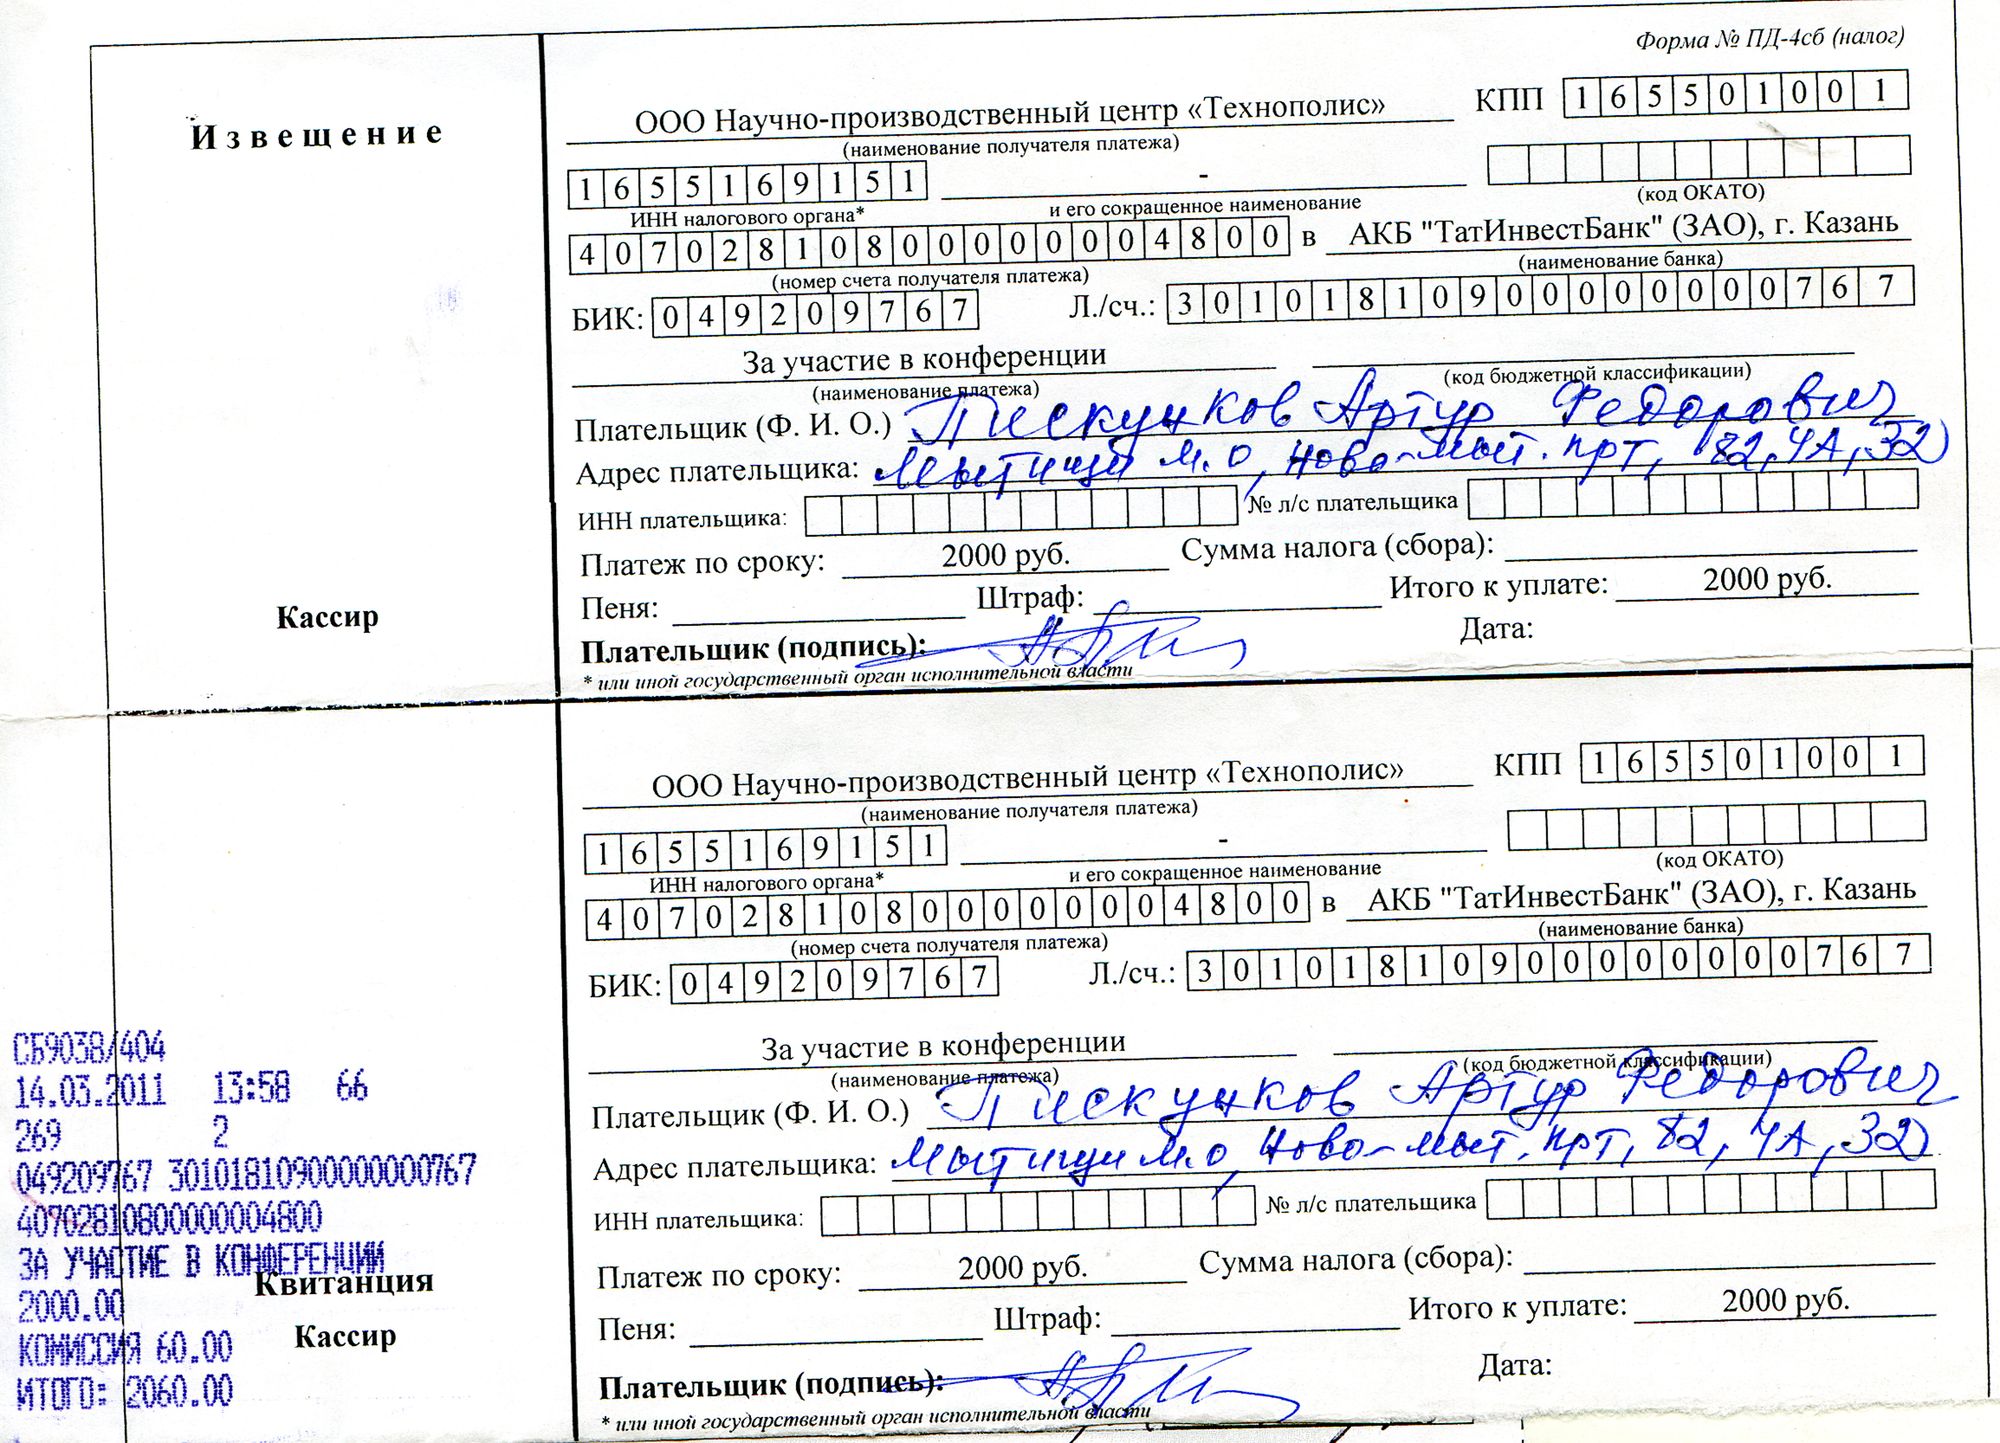 Форма № ПД-4сб (налог)
Извещение
ООО Научно-производственный центр «Технополис» КПП 165501001
(наименование получателя платежа)
1655169151 -
ИНН налогового органа* и его сокращенное наименование (код ОКАТО)
40702810800000004800 в АКБ "ТатИнвестБанк" (ЗАО), г. Казань
(номер счета получателя платежа) (наименование банка)
БИК: 049209767 Л./сч.: 30101810900000000767
За участие в конференции
(наименование платежа) (код бюджетной классификации)
Плательщик (Ф. И. О.) Пискунков Артур Федорович
Адрес плательщика: Мытищи М.О, Ново-мыт. прт, 82, 4А, 32
ИНН плательщика: № л/с плательщика
Платеж по сроку: 2000 руб. Сумма налога (сбора):
Пеня: Штраф: Итого к уплате: 2000 руб.
Кассир
Плательщик (подпись): Дата:
* или иной государственный орган исполнительной власти
ООО Научно-производственный центр «Технополис» КПП 165501001
(наименование получателя платежа)
1655169151 -
ИНН налогового органа* и его сокращенное наименование (код ОКАТО)
40702810800000004800 в АКБ "ТатИнвестБанк" (ЗАО), г. Казань
(номер счета получателя платежа) (наименование банка)
БИК: 049209767 Л./сч.: 30101810900000000767
За участие в конференции
(наименование платежа) (код бюджетной классификации)
Плательщик (Ф. И. О.) Пискунков Артур Федорович
Адрес плательщика: Мытищи М.О, Ново-мыт. прт, 82, 4А, 32
ИНН плательщика: № л/с плательщика
Платеж по сроку: 2000 руб. Сумма налога (сбора):
Пеня: Штраф: Итого к уплате: 2000 руб.
Плательщик (подпись): Дата:
* или иной государственный орган исполнительной власти
СБ9038/404
14.03.2011 13:58 66
269 2
049209767 30101810900000000767
40702810800000004800
ЗА УЧАСТИЕ В КОНФЕРЕНЦИИ
Квитанция
2000.00
Кассир
КОМИССИЯ 60.00
ИТОГО: 2060.00